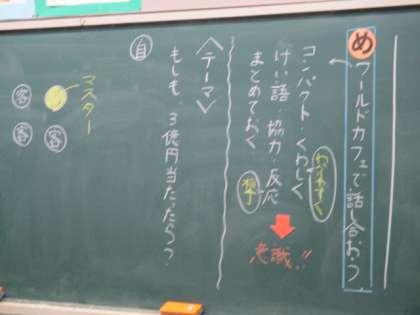 め ワールドカフェで話し合おう
コンパクト・くわしく
わかりやすく
けい語・協力・反応
まとめておく
意識!!
〈テーマ〉
もしも、3億円当たったら?
自
マスター
客
客
客